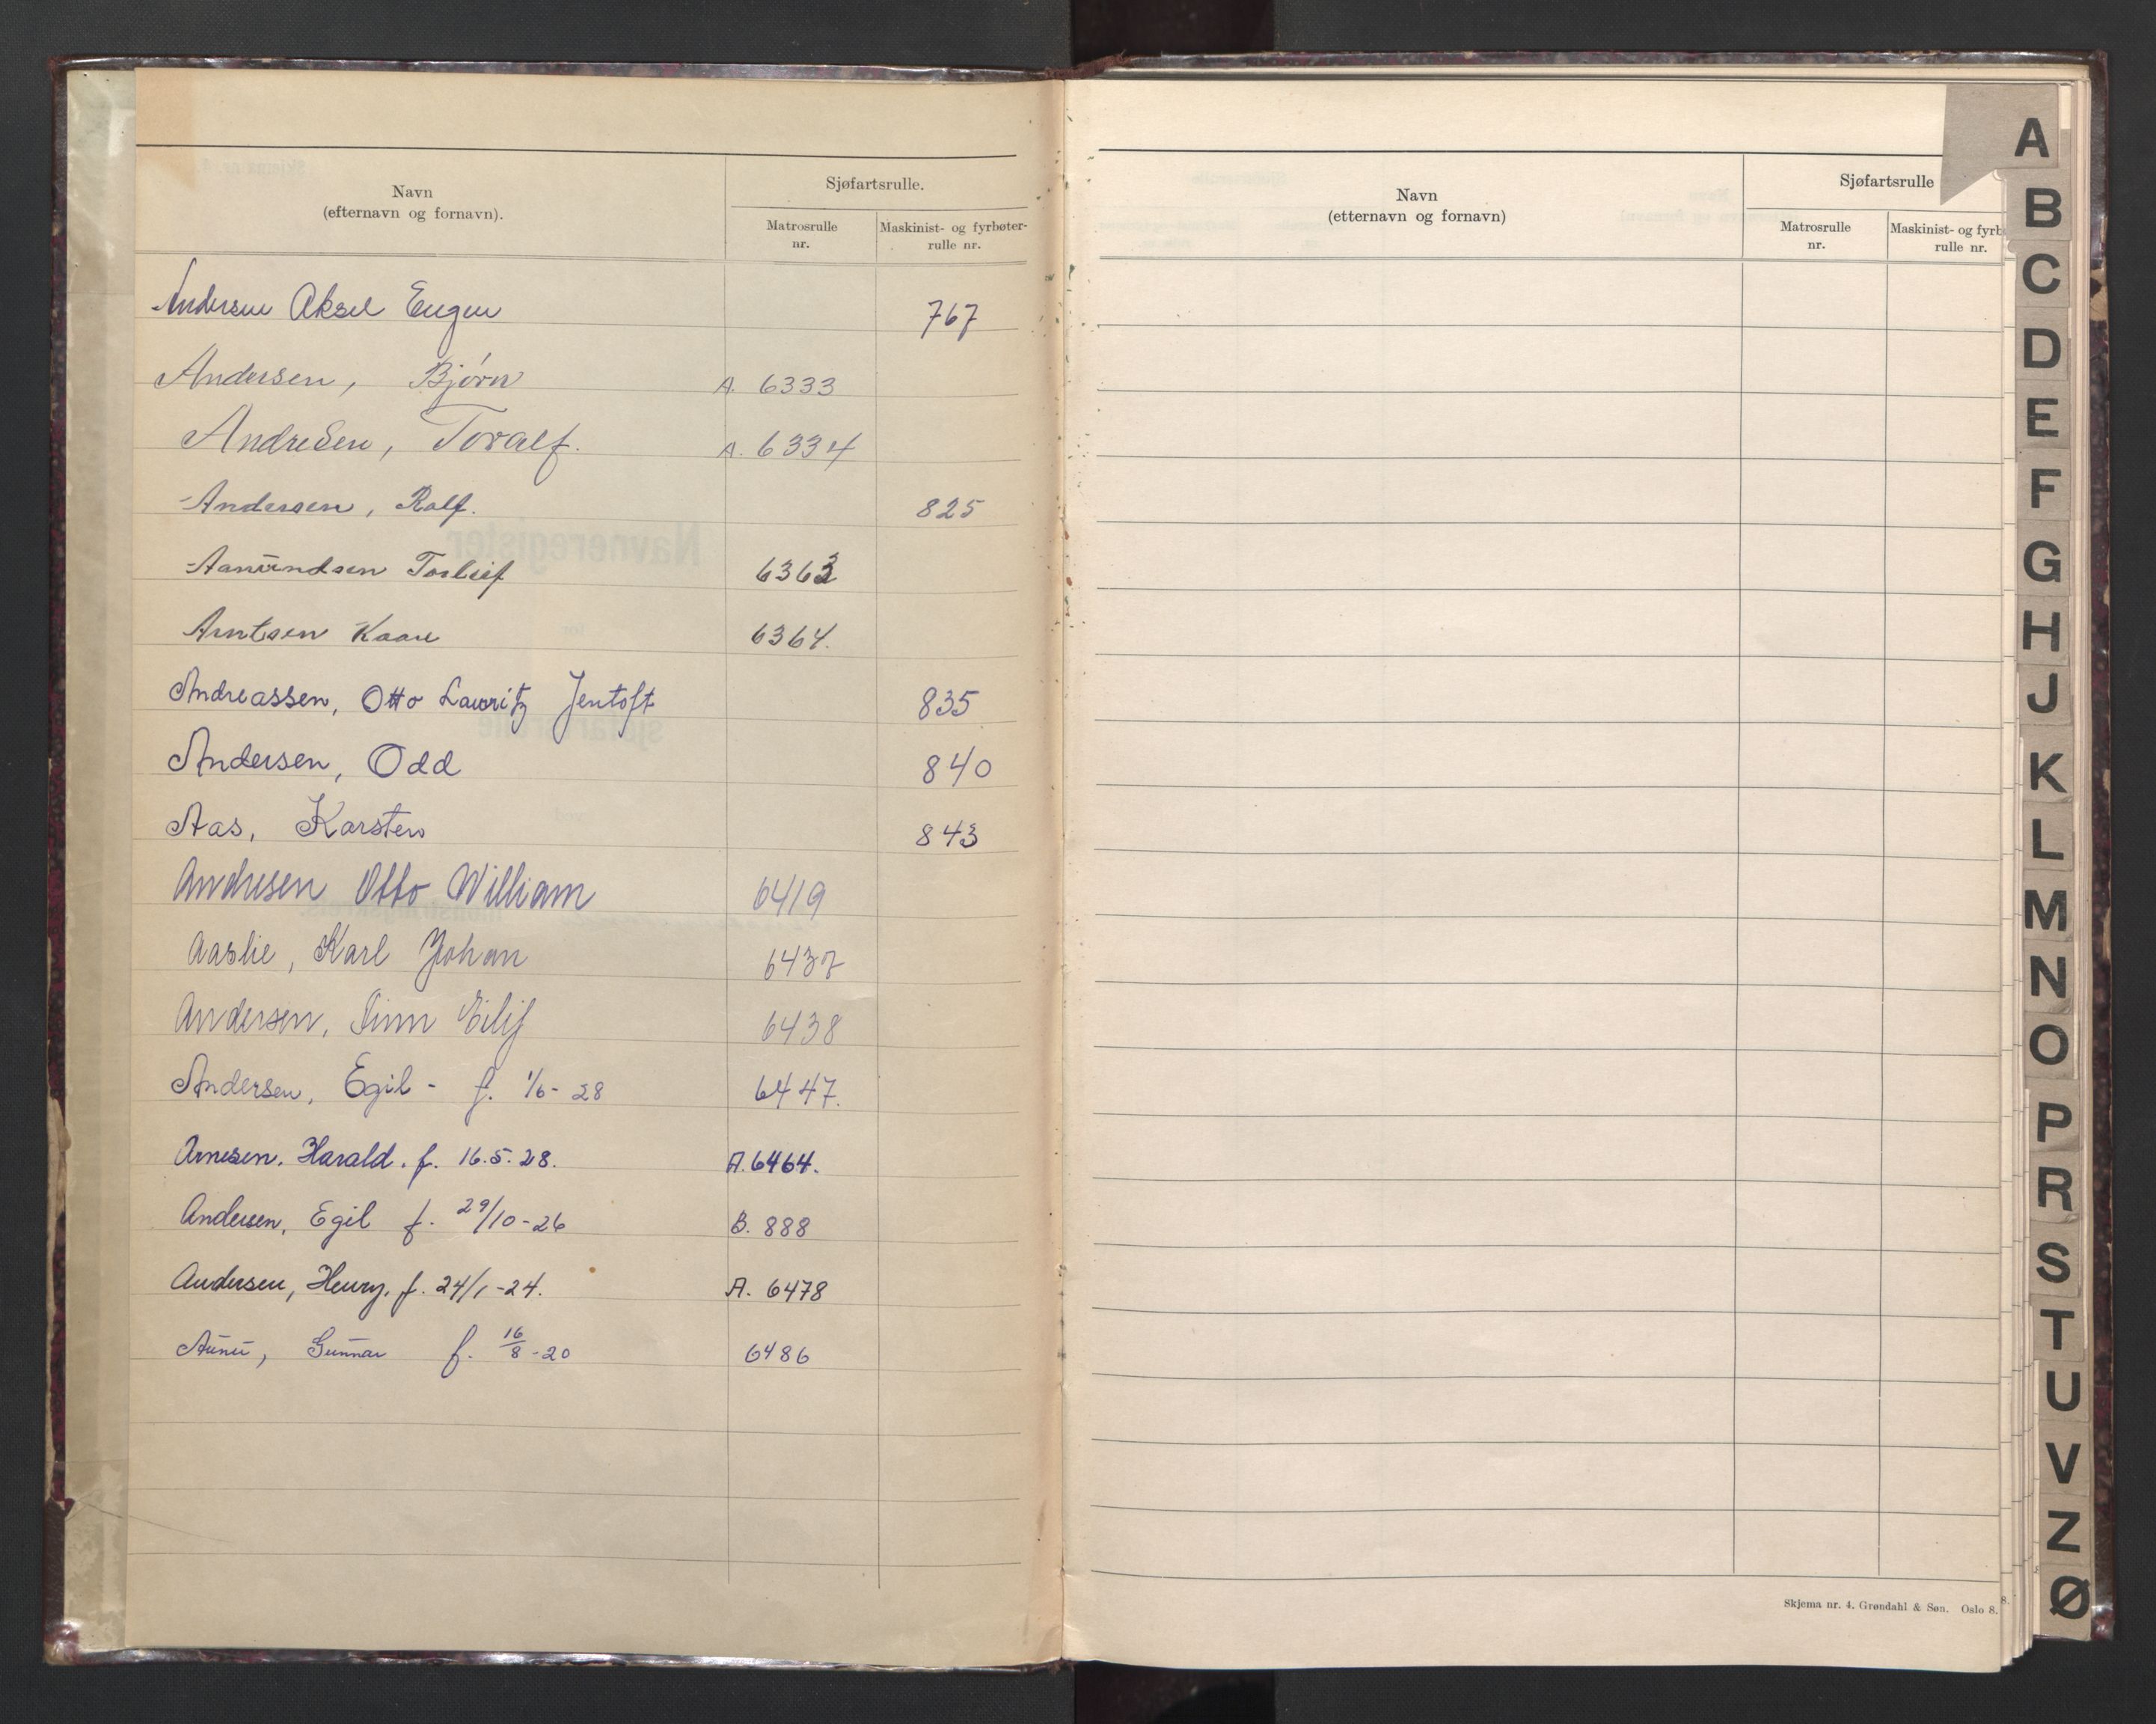 Navn
(efternavn og fornavn).
Sjøfartsrulle.
Matrosrulle
nr.
Maskinist- og fyrbøter-
rulle nr.
Andersen Aksel Eugen 767
Andersen, Bjørn A. 6333
Andresen, Toralf. A. 6334
Andersen, Rolf. 825
Aamundsen Torleif 6363
Arntsen Kaare 6364.
Andreassen, Otto Lauritz Jentoft 835
Andersen, Odd 840
Aas, Karsten 843
Andresen Otto William 6419
Aaslie, Karl Johan 6437
Andersen, Finn Eilif 6438
Andersen, Egil - f. 1/6 - 28 6447.
Arnesen. Harald. f. 16.5.28. A. 6464.
Andersen, Egil f. 29/10-26 B. 888
Andersen, Henry. f. 24/1-24. A. 6478
Gunnar f. 16/8-20 6486
Navn
(etternavn og fornavn)
Sjøfartsrulle
Matrosrulle
nr.
Maskinist- og fyrb
rulle nr.
Skjema nr. 4. Grøndahl & Søn. Oslo 8.
8.
A
B
C
D
E
F
G
H
J
K
L
M
N
O
P
R
S
T
U
V
Z
Ø